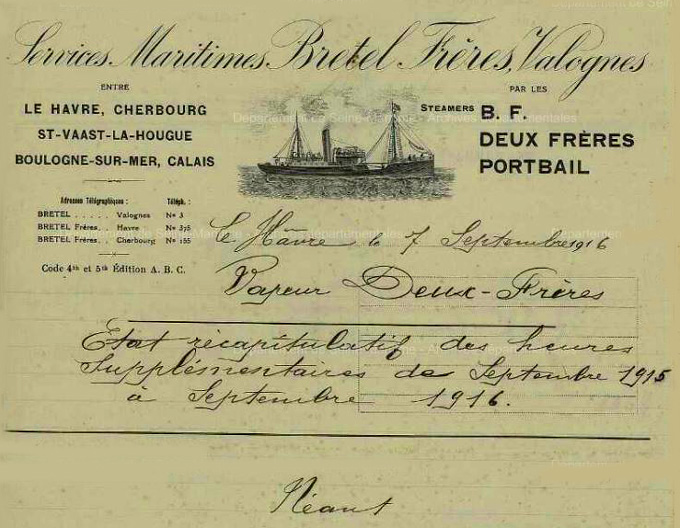 Services Maritimes Bretel Frères, Valognes
ENTRE
LE HAVRE, CHERBOURG
ST-VAAST-LA-HOUGUE
BOULOGNE-SUR-MER, CALAIS
PAR LES
STEAMERS B. F.
DEUX FRÈRES
PORTBAIL
Adresses Télégraphiques : Téléph. :
BRETEL . . . . . Valognes No 3
BRETEL Frères. . Havre No 375
BRETEL Frères. . Cherbourg No 155
Code 4th et 5th Édition A. B. C.
Le Hâvre le 7 Septembre 1916
Vapeur Deux-Frères
Etat récapitulatif des heures
Supplémentaires de Septembre 1915
à Septembre 1916.
Néant